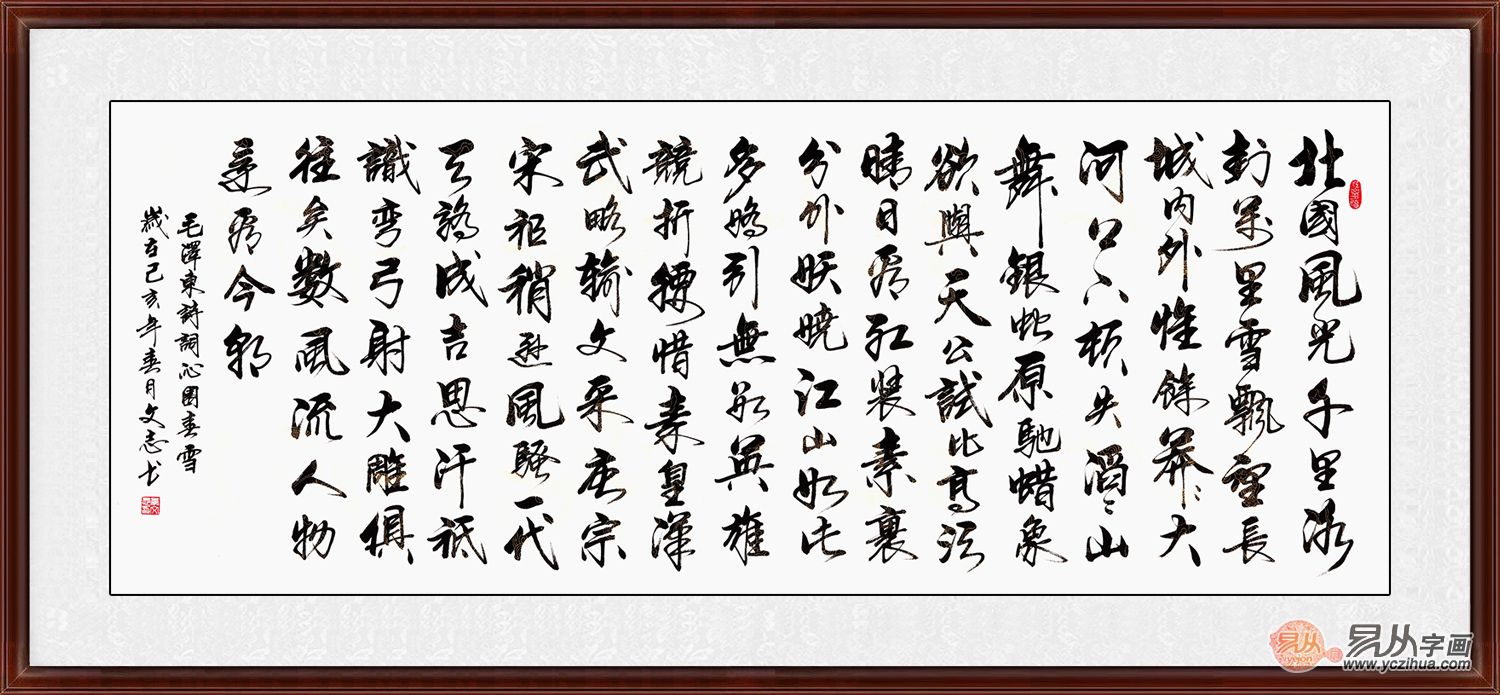 北國風光千里冰
封萬里雪飄望長
城内外惟餘莽〻大
河上下頓失滔〻山
舞銀蛇原馳蜡象
欲與天公試比高須
晴日看紅裝素裹
分外妖嬈江山如此
多嬌引無數英雄
競折腰惜秦皇漢
武略輸文采唐宗
宋祖稍遜風騷一代
天驕成吉思汗祗
識彎弓射大雕俱
往矣數風流人物
還看今朝
毛澤東詩詞沁園春雪
歲在己亥年春月文志书
易从
yicong
易从字画
www.yczihua.com